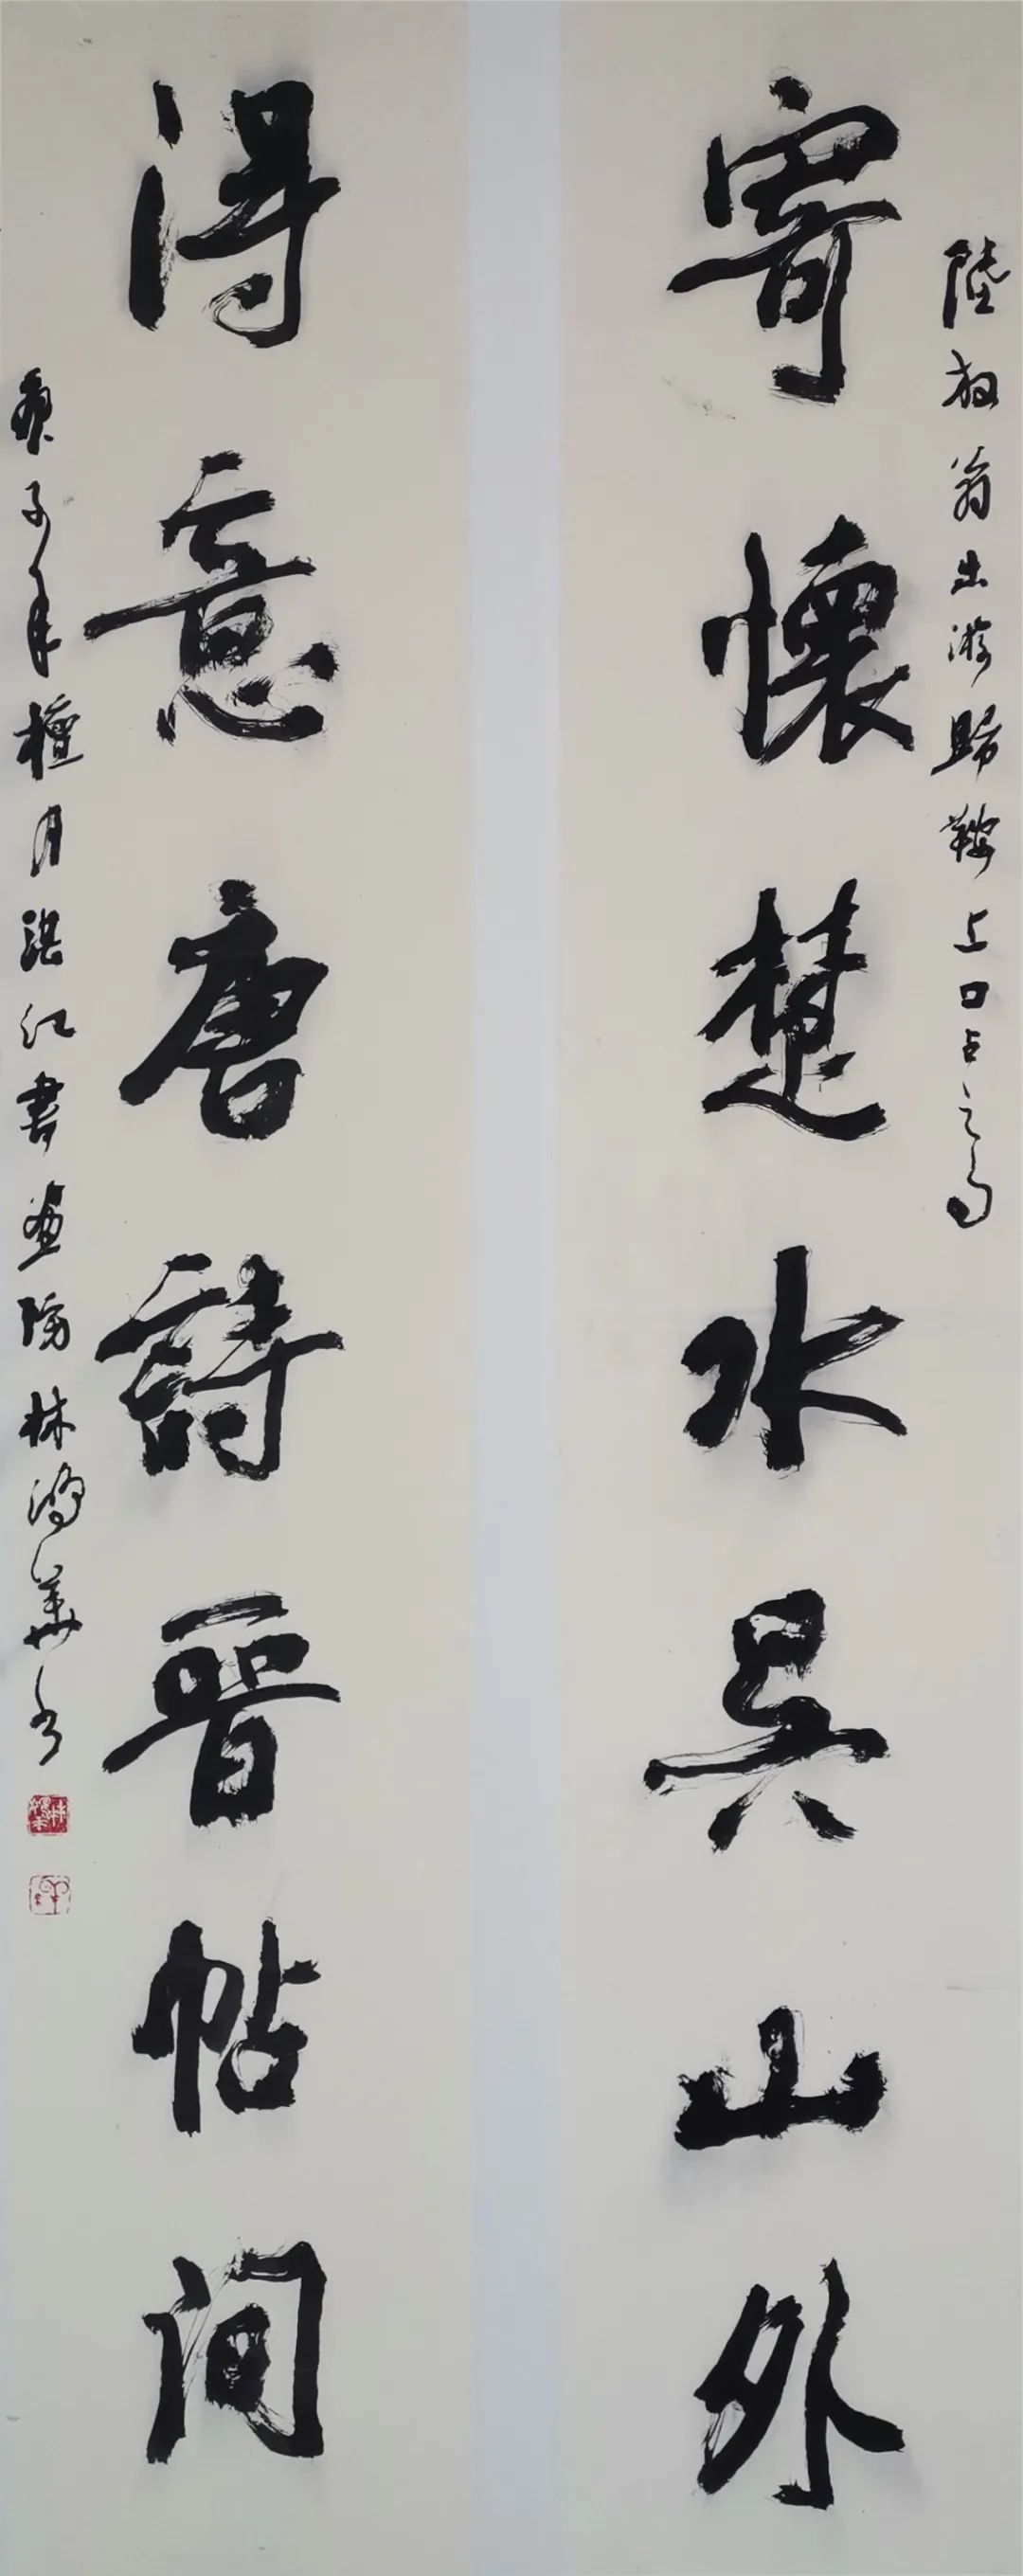 陸放翁出游歸鞍上口占之句
寄懷楚水吴山外
得意唐詩晉帖间
庚子年檀月湛江書畫院林鴻華书